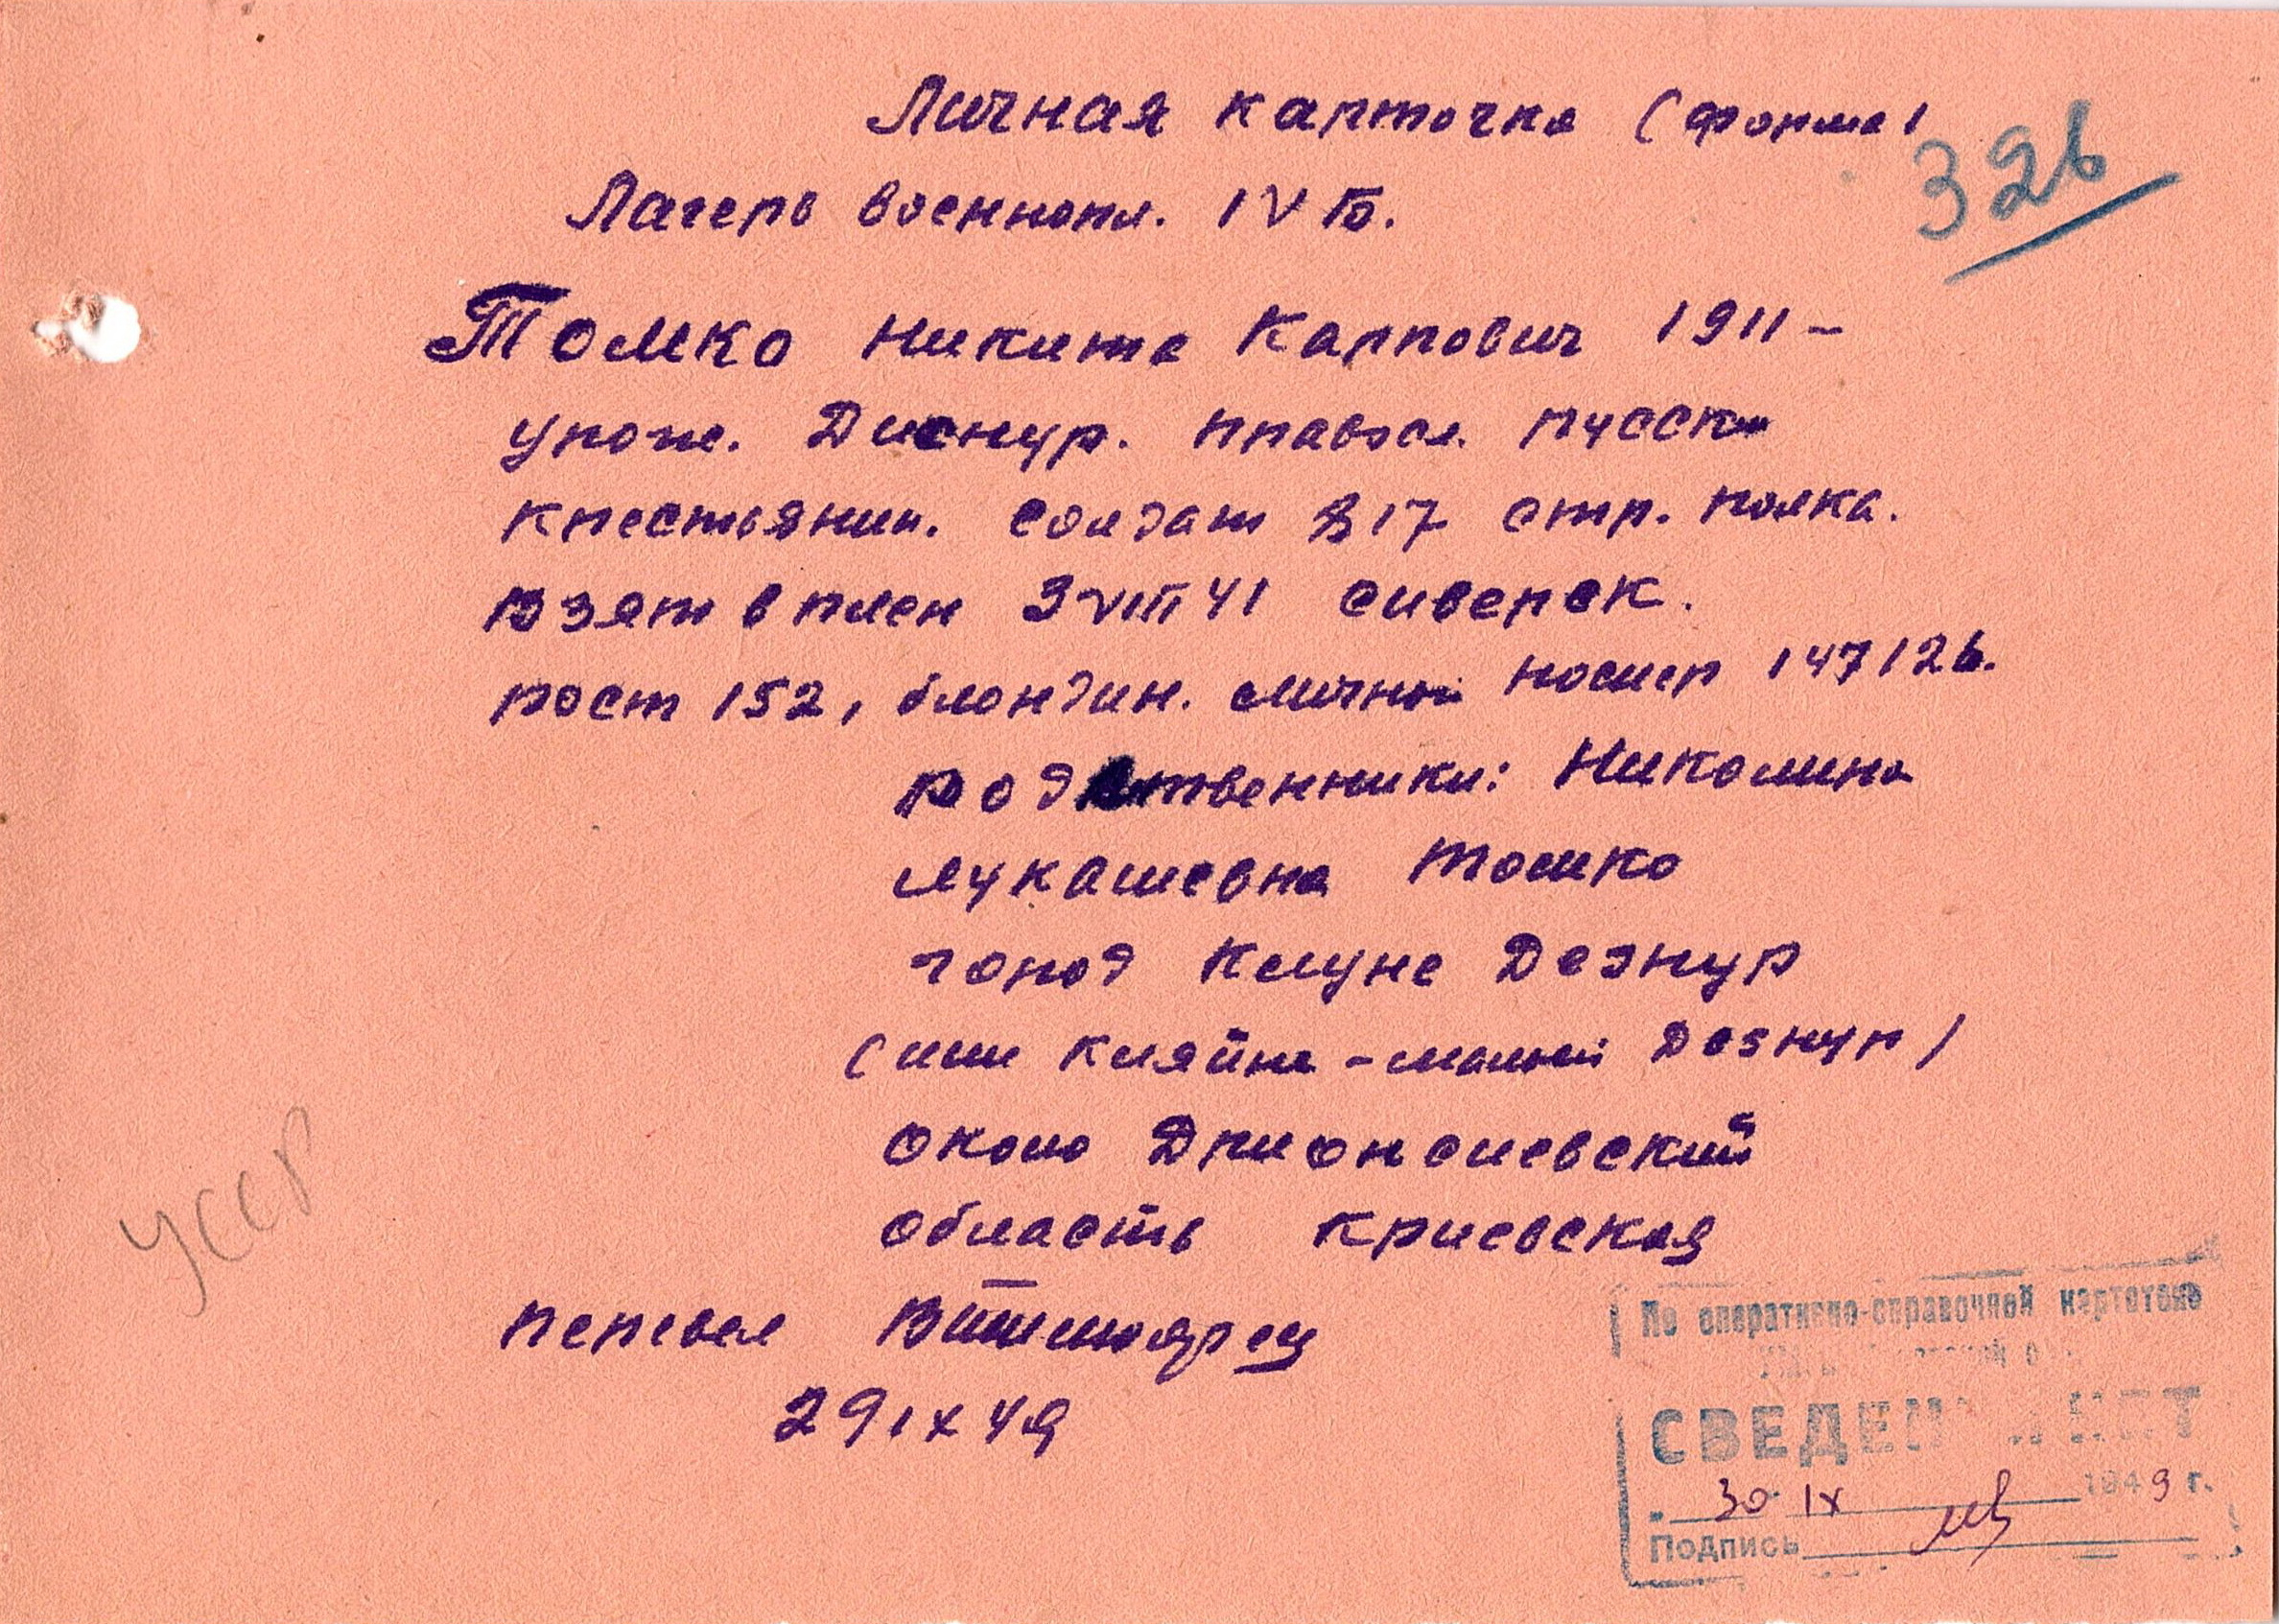 Личная карточка (форма)
326
Лагерь военнопл. IV Б.
Томко Никита Карпович 1911 –
урож. Диснур. правосл. русск
крестьянин. солдат 817 стр. полка.
взят в плен 3 VIII 41 Сиверск.
рост 152, блондин. личной номер 147126.
родственники: Николина
Лукашевна Томко
город Клуне Дезнур
(или Кляйне-малый Дезнур)
около Дрионсиевский
область Криевская
УССР
перевел
29 IX 49
По оперативно-справочной картотеке
СВЕДЕНИЙ НЕТ
„ 30 IX 1949 г.
Подпись